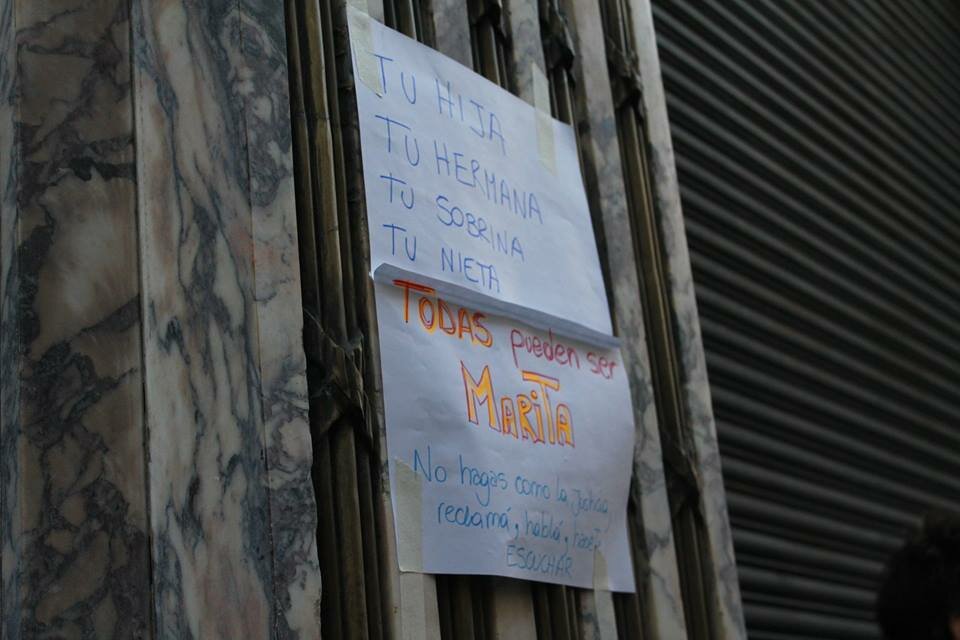 TU HIJA
TU HERMANA
TU SOBRINA
TU NIETA
TODAS pueden ser
MARITA
No hagas como la justicia,
reclamá, hablá, hacete
ESCUCHAR